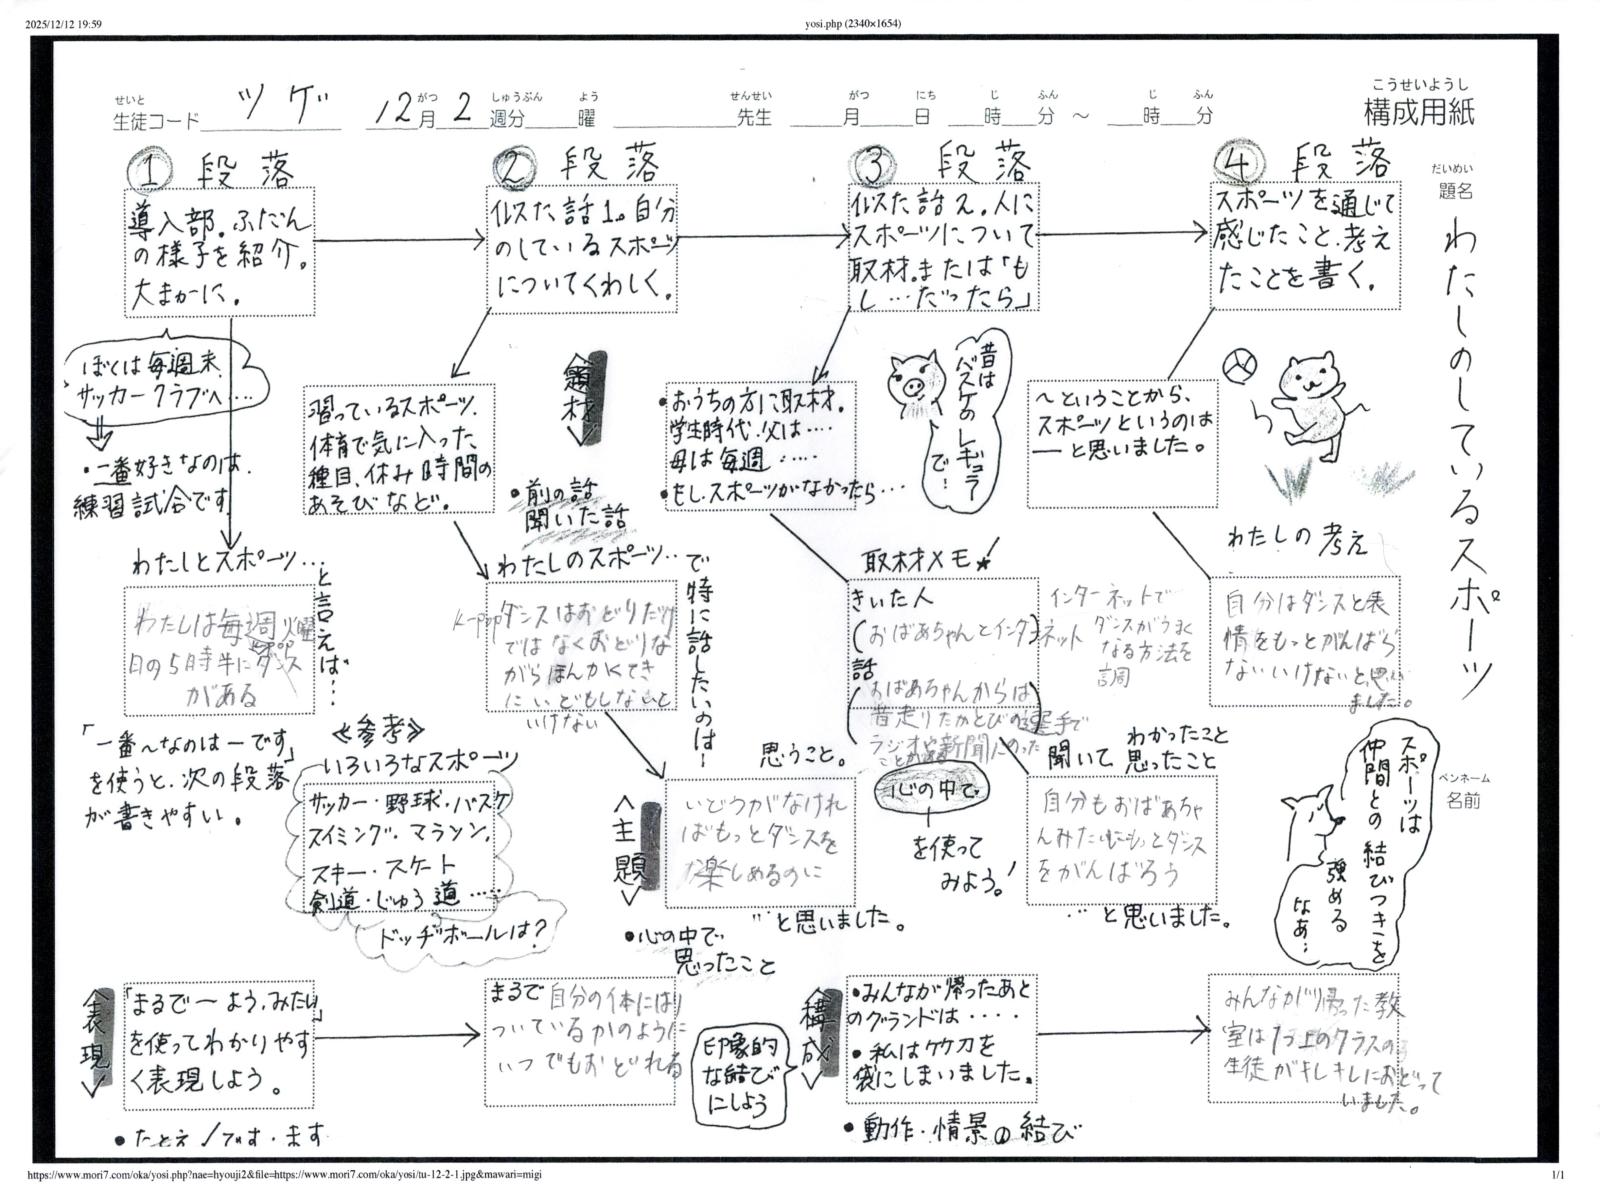 2025/12/12 19:59
yosi.php (2340×1654)
こうせいようし
構成用紙
せいと
生徒コード ツゲ
がつ しゅうぶん よう
12月2週分 曜
せんせい
先生
がつ にち じ ふん じ ふん
月 日 時 分 ～ 時 分
だいめい
題名
わたしのしているスポーツ
ペンネーム
名前
① 段落
導入部。ふだん
の様子を紹介。
大まかに。
② 段落
似た話1。自分
のしているスポーツ
についてくわしく。
③ 段落
似た話2。人に
スポーツについて
取材。または「も
し…だったら」
④ 段落
スポーツを通じて
感じたこと、考え
たことを書く。
ぼくは毎週末、
サッカークラブへ…
・一番好きなのは、
練習試合です。
習っているスポーツ、
体育で気に入った
種目、休み時間の
あそびなど。
＜題材＞
・前の話
聞いた話
・おうちの方に取材。
学生時代、父は‥‥
母は毎週‥‥
・もし、スポーツがなかったら…
昔は
バスケのレギュラー
で…
～ということから、
スポーツというのは
―と思いました。
わたしとスポーツ…
と言えば…
わたしは毎週火曜
日の5時半に
ダンス
がある
わたしのスポーツ‥
で特に話したいのは―
K-popダンスはおどりだけ
ではなくおどりな
がら
しないと
いけない
取材メモ★
きいた人
(おばあちゃんとインターネット
話
(おばあちゃんからは
昔走りたかとびの選手で
ラジオや新聞にのった
ことがある
インターネットで
ダンスがうまく
なる方法を
調
わたしの考え
自分はダンスと表
情をもっとがんばら
ないいけないと思い
ました。
「一番～なのは―です」
を使うと、次の段落
が書きやすい。
≪参考≫
いろいろなスポーツ
サッカー・野球・バスケ
スイミング・マラソン、
スキー・スケート
剣道・じゅう道……
ドッヂボールは？
思うこと。
＜主題＞
いどうがなけれ
ばもっとダンスを
楽しめるのに
…と思いました。
・心の中で
思ったこと
心の中で
を使って
みよう。
聞いて わかったこと
思ったこと
自分もおばあちゃ
んみたいにもっとダンス
をがんばろう
…と思いました。
スポーツは
仲間との結びつきを
強める
なあ…
＜表現＞
「まるで～よう、みたい」
を使ってわかりやす
く表現しよう。
・たとえ／です・ます
まるで自分の体にはり
ついているかのように
いつでもおどれる
印象的
な結び
にしよう
＜構成＞
・みんなが帰ったあと
のグランドは‥‥
・私はケケ刀を
袋にしまいました。
・動作・情景の結び
みんなが帰った教
室は1つ上のクラスの
生徒がキレキレにおどって
いました。
https://www.mori7.com/oka/yosi.php?nae=hyouji2&file=https://www.mori7.com/oka/yosi/tu-12-2-1.jpg&mawari=migi
1/1